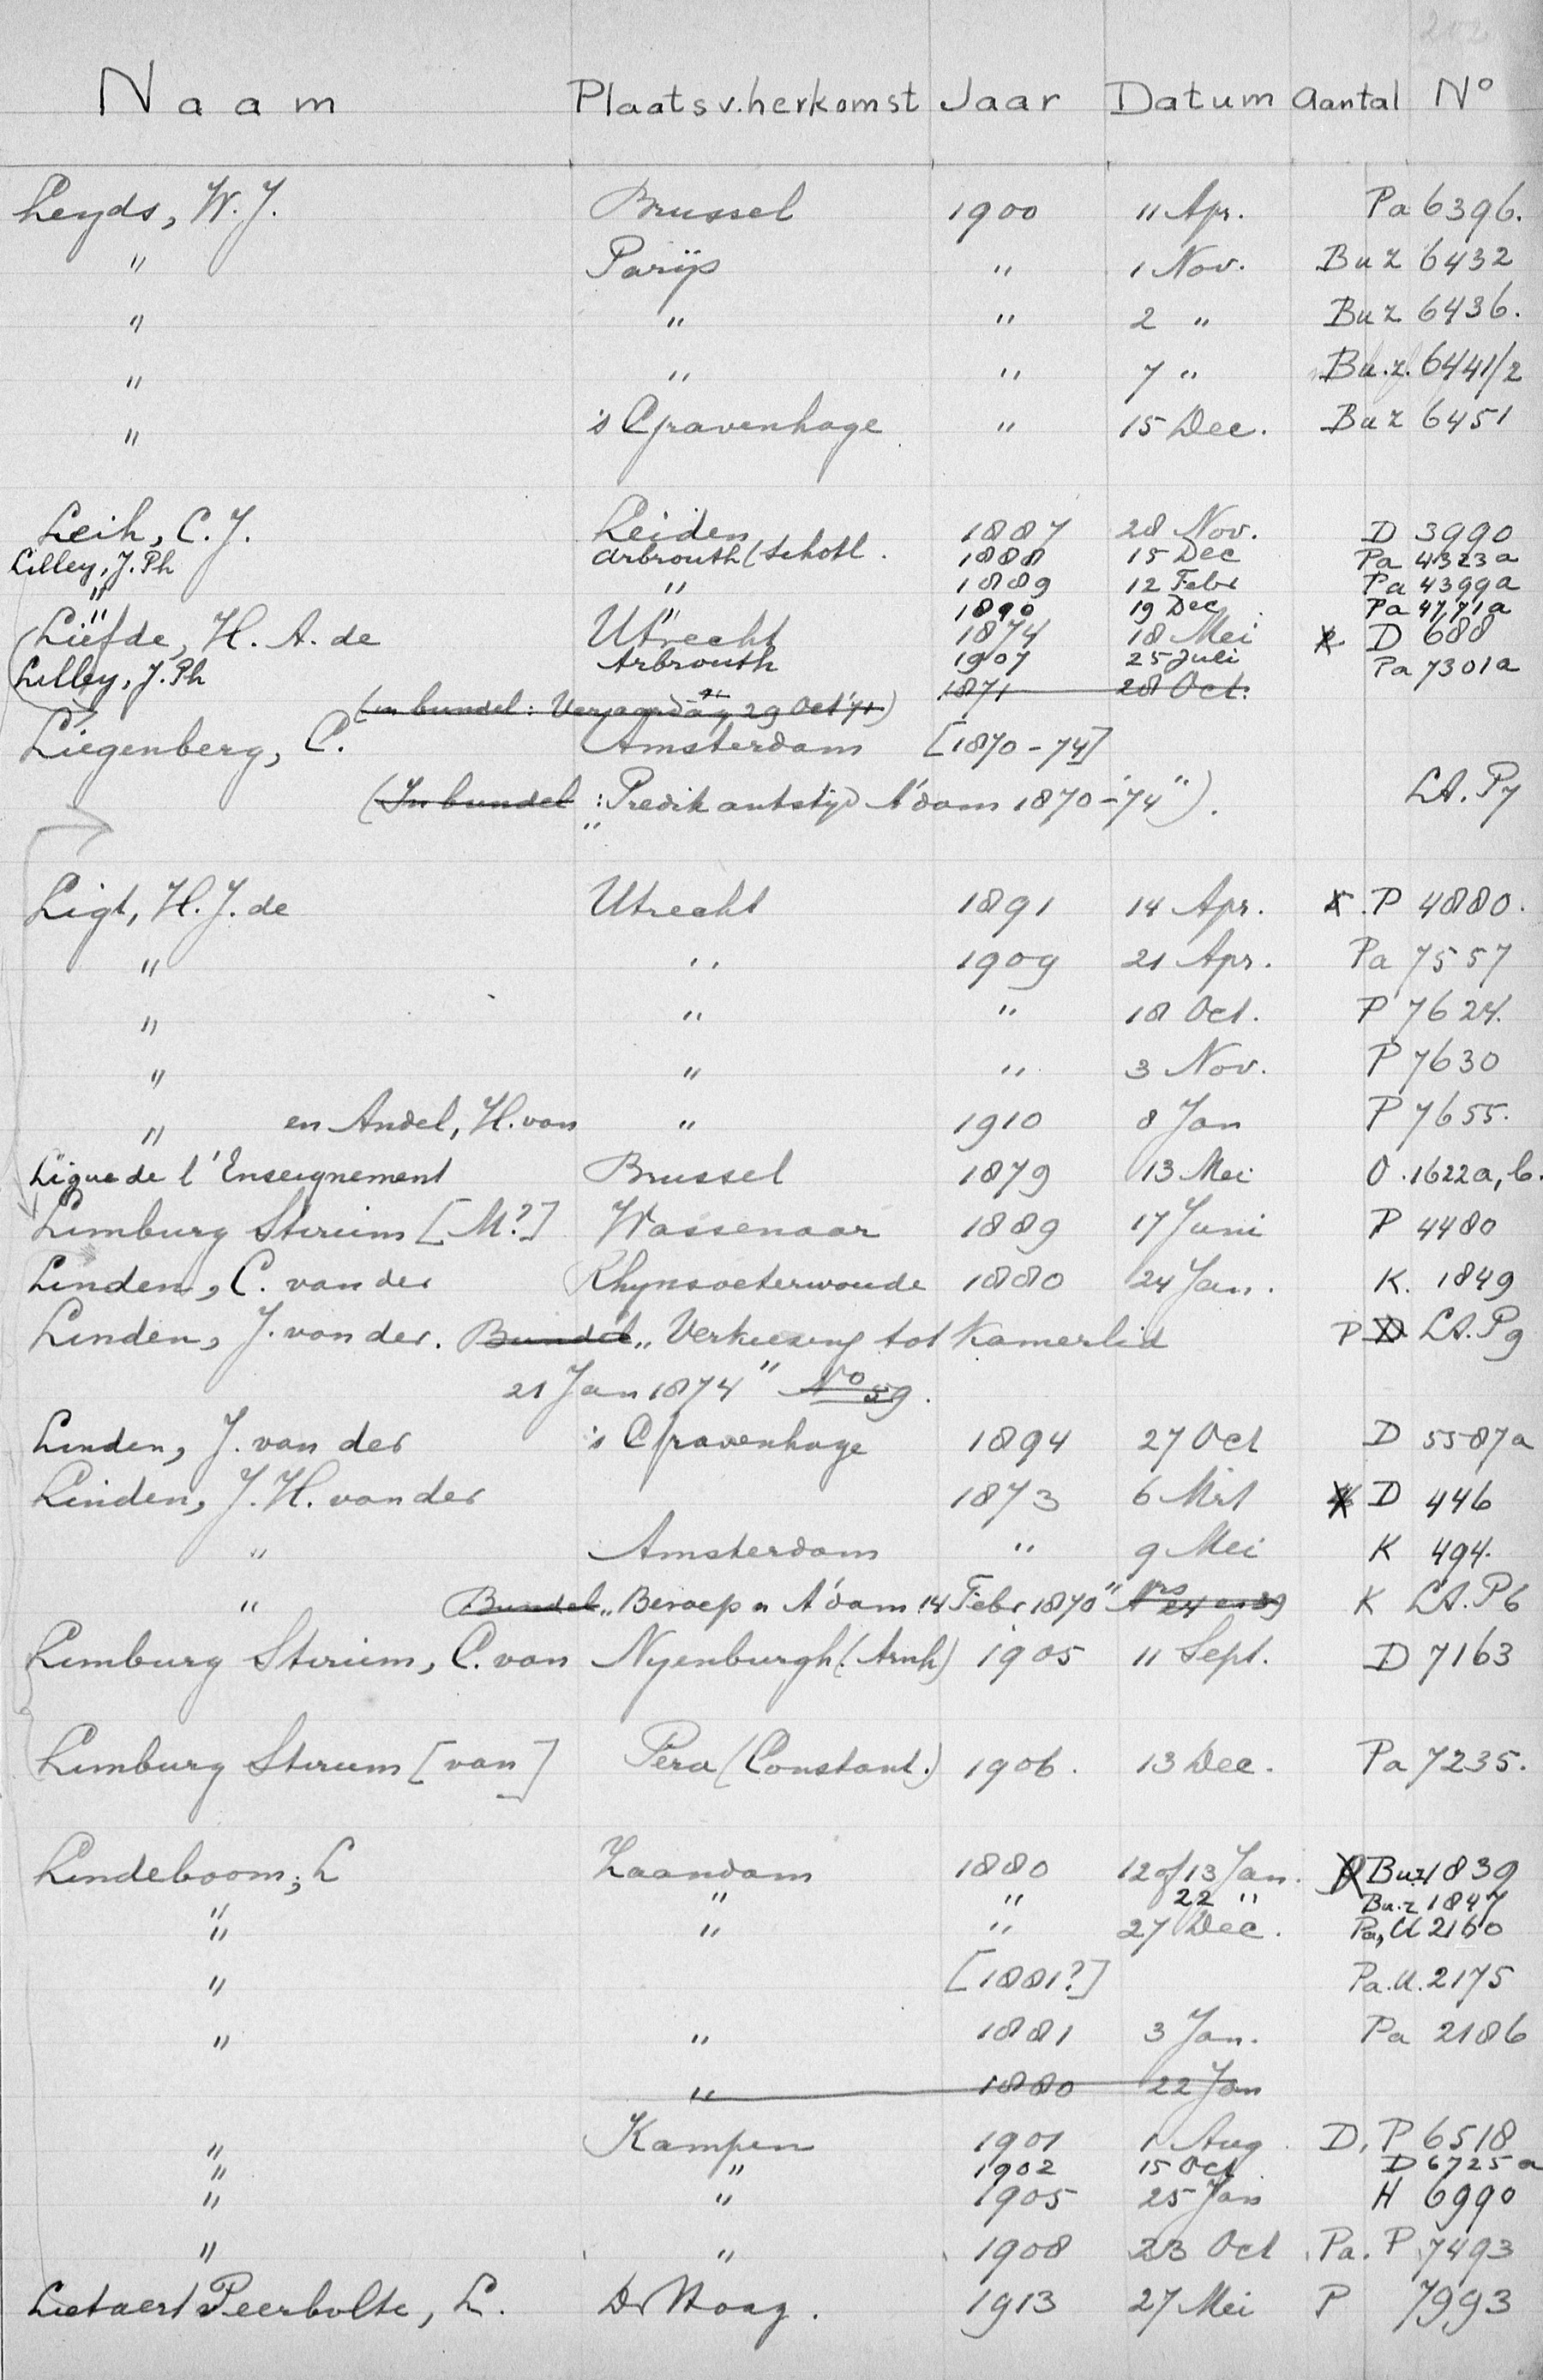 212
Naam Plaats v. herkomst Jaar Datum Aantal No
Leyds, W. J. Brussel 1900 11 Apr. Pa 6396.
" Parijs " 1 Nov. Buz 6432
" " " 2 " Buz 6436.
" " " 7 " Bu.z. 6441/2
" 's Gravenhage " 15 Dec. Buz 6451
Leih, C. J. Leiden 1887 28 Nov. D 3990
Lilley, J. Ph Arbrouth (Schotl. 1888 15 Dec Pa 4323a
" " 1889 12 Febr Pa 4399a
" " 1890 19 Dec Pa 4771a
Liefde, H. A. de Utrecht 1874 18 Mei D 688
Lilley, J. Ph Arbrouth 1907 25 Juli Pa 7301a
(in bundel: Verjaardag, 29 Oct '71) 1871 28 Oct.
Liegenberg, C. Amsterdam [1870-74]
(In bundel: "Predikantstijd A'dam 1870-'74"). LA. P7
Ligt, H. J. de Utrecht 1891 14 Apr. P 4880.
" " 1909 21 Apr. Pa 7557
" " " 18 Oct. P 7624.
" " " 3 Nov. P 7630
" en Andel, H. van " 1910 8 Jan P 7655.
Ligue de l'Enseignement Brussel 1879 13 Mei O. 1622a, b.
Limburg Stirum [M?] Wassenaar 1889 17 Juni P 4480
Linden, C. van der Rhynsoeterwoude 1880 24 Jan. K. 1849
Linden, J. van der. Bundel "Verkiezing tot Kamerlid P D LA. P9
21 Jan 1874" No 59.
Linden, J. van der 's Gravenhage 1894 27 Oct D 5587a
Linden, J. H. van der 1873 6 Mrt D 446
" Amsterdam " 9 Mei K 494.
" Bundel "Beroep n A'dam 14 Febr 1870" Nrs 24 en 39 K LA. P6
Limburg Stirum, C. van Nyenburgh (Arnh) 1905 11 Sept. D 7163
Limburg Stirum [van] Pera (Constant.) 1906. 13 Dec. Pa 7235.
Lindeboom, L Zaandam 1880 12 of 13 Jan. Buz 1839
" " " 22 " Bu.z 1847
" " " 27 Dec. Pa, U 2160
" [1881?] Pa. U. 2175
" " 1881 3 Jan. Pa 2186
" 1880 22 Jan
" Kampen 1901 1 Aug D, P 6518
" " 1902 15 Oct D 6725a
" " 1905 25 Jan H 6990
" " 1908 23 Oct Pa. P 7493
Lietaert Peerbolte, L. Den Haag. 1913 27 Mei P 7993